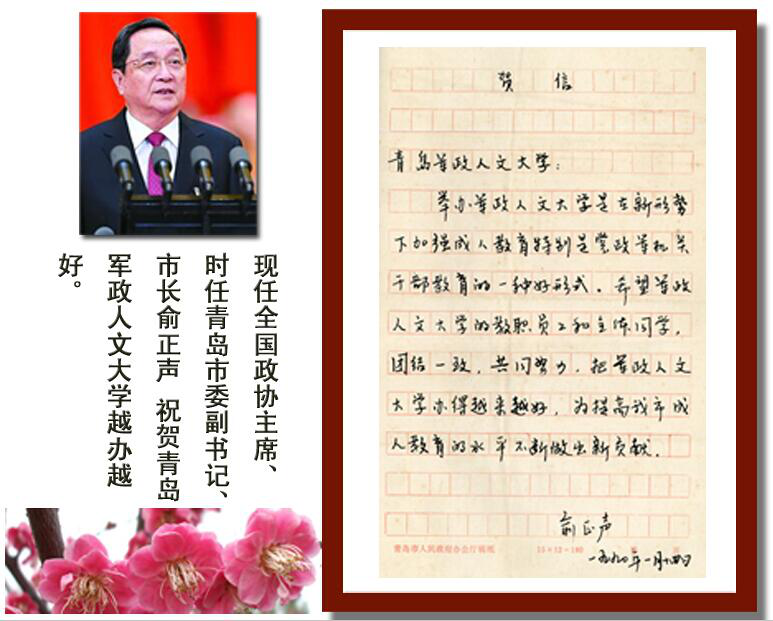 现任全国政协主席、
时任青岛市委副书记、
市长俞正声 祝贺青岛
军政人文大学越办越
好。
贺 信
青岛军政人文大学：
举办军政人文大学是在新形势
下加强成人教育特别是党政军机关
干部教育的一种好形式。希望军政
人文大学的教职员工和全体同学，
团结一致，共同努力，把军政人文
大学办得越来越好，为提高我市成
人教育的水平不断做出新贡献。
俞正声
青岛市人民政府办公厅稿纸 15×12=180
一九九〇年一月十四日